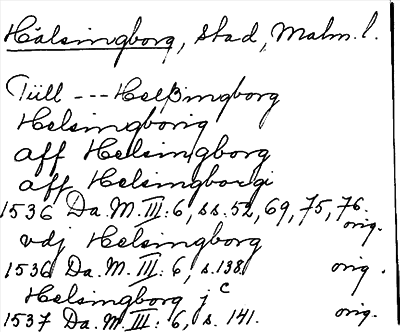 Hälsingborg, stad, Malm. l.
Tüll --- Helßingborg
Helsingborig
aff Helsingborg
aff Helsingborgi
1536 Da. M. III: 6, ss. 52, 69, 75, 76. orig.
vdj Helsingborg
1536 Da. M. III: 6, s. 138. orig.
Helsingborg j c
1537 Da. M. III: 6, s. 141. orig.